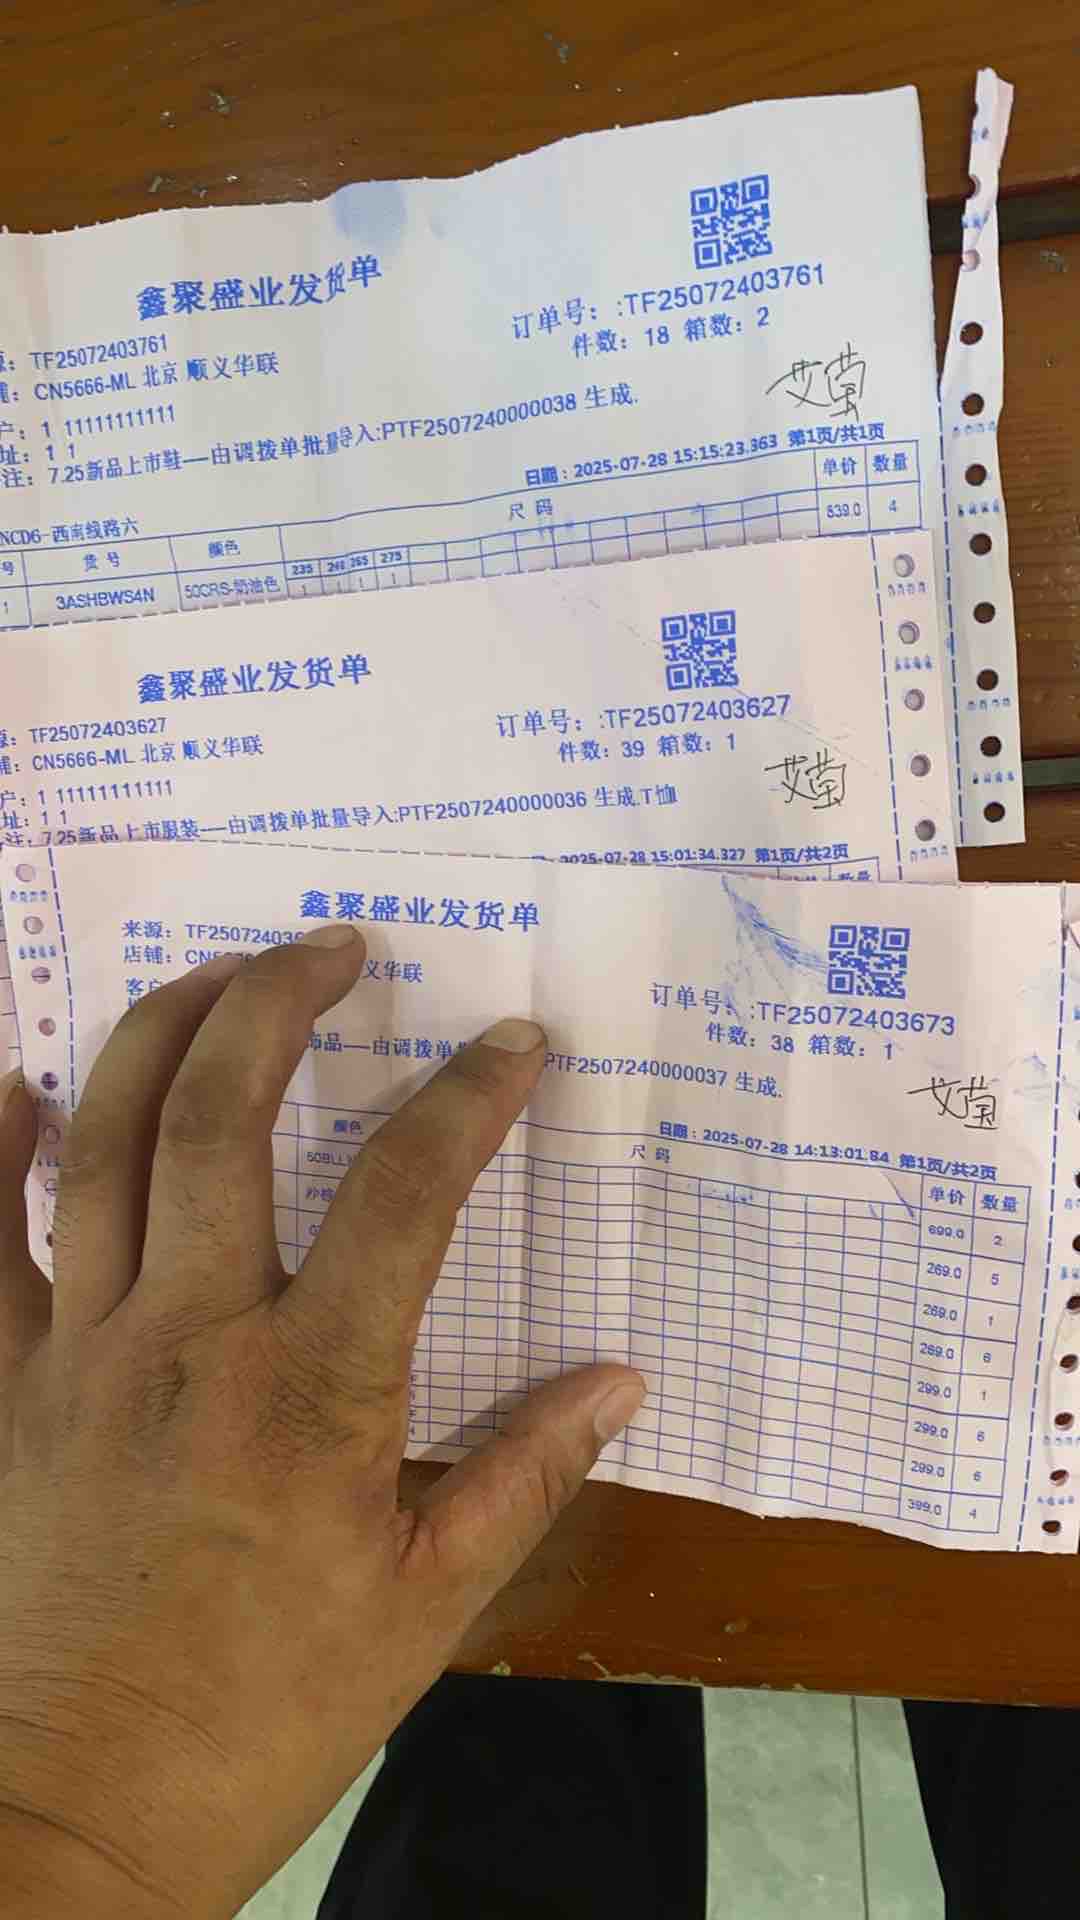 鑫聚盛业发货单
源：TF25072403761
铺：CN5666-ML 北京 顺义华联
户：1 11111111111
址：1 1
注：7.25新品上市鞋----由调拨单批量导入:PTF2507240000038 生成.
订单号：:TF25072403761
件数：18 箱数：2
艾莹
日期：2025-07-28 15:15:23.363 第1页/共1页
NCD6-西南线路六
号 货号 颜色 尺码 单价 数量
235 265 275
1 3ASHBWS4N 50CRS-奶油色 1 1 1 1 839.0 4
鑫聚盛业发货单
源：TF25072403627
铺：CN5666-ML 北京 顺义华联
户：1 11111111111
址：1 1
注：7.25新品上市服装----由调拨单批量导入:PTF2507240000036 生成.T恤
订单号：:TF25072403627
件数：39 箱数：1
艾莹
2025-07-28 15:01:34.327 第1页/共2页
数量
鑫聚盛业发货单
来源：TF250724036
店铺：CN 义华联
客户
饰品----由调拨单批 PTF2507240000037 生成.
订单号：:TF25072403673
件数：38 箱数：1
艾莹
日期：2025-07-28 14:13:01.84 第1页/共2页
颜色 尺码 单价 数量
699.0 2
269.0 5
269.0 1
269.0 6
299.0 1
299.0 6
299.0 6
399.0 4